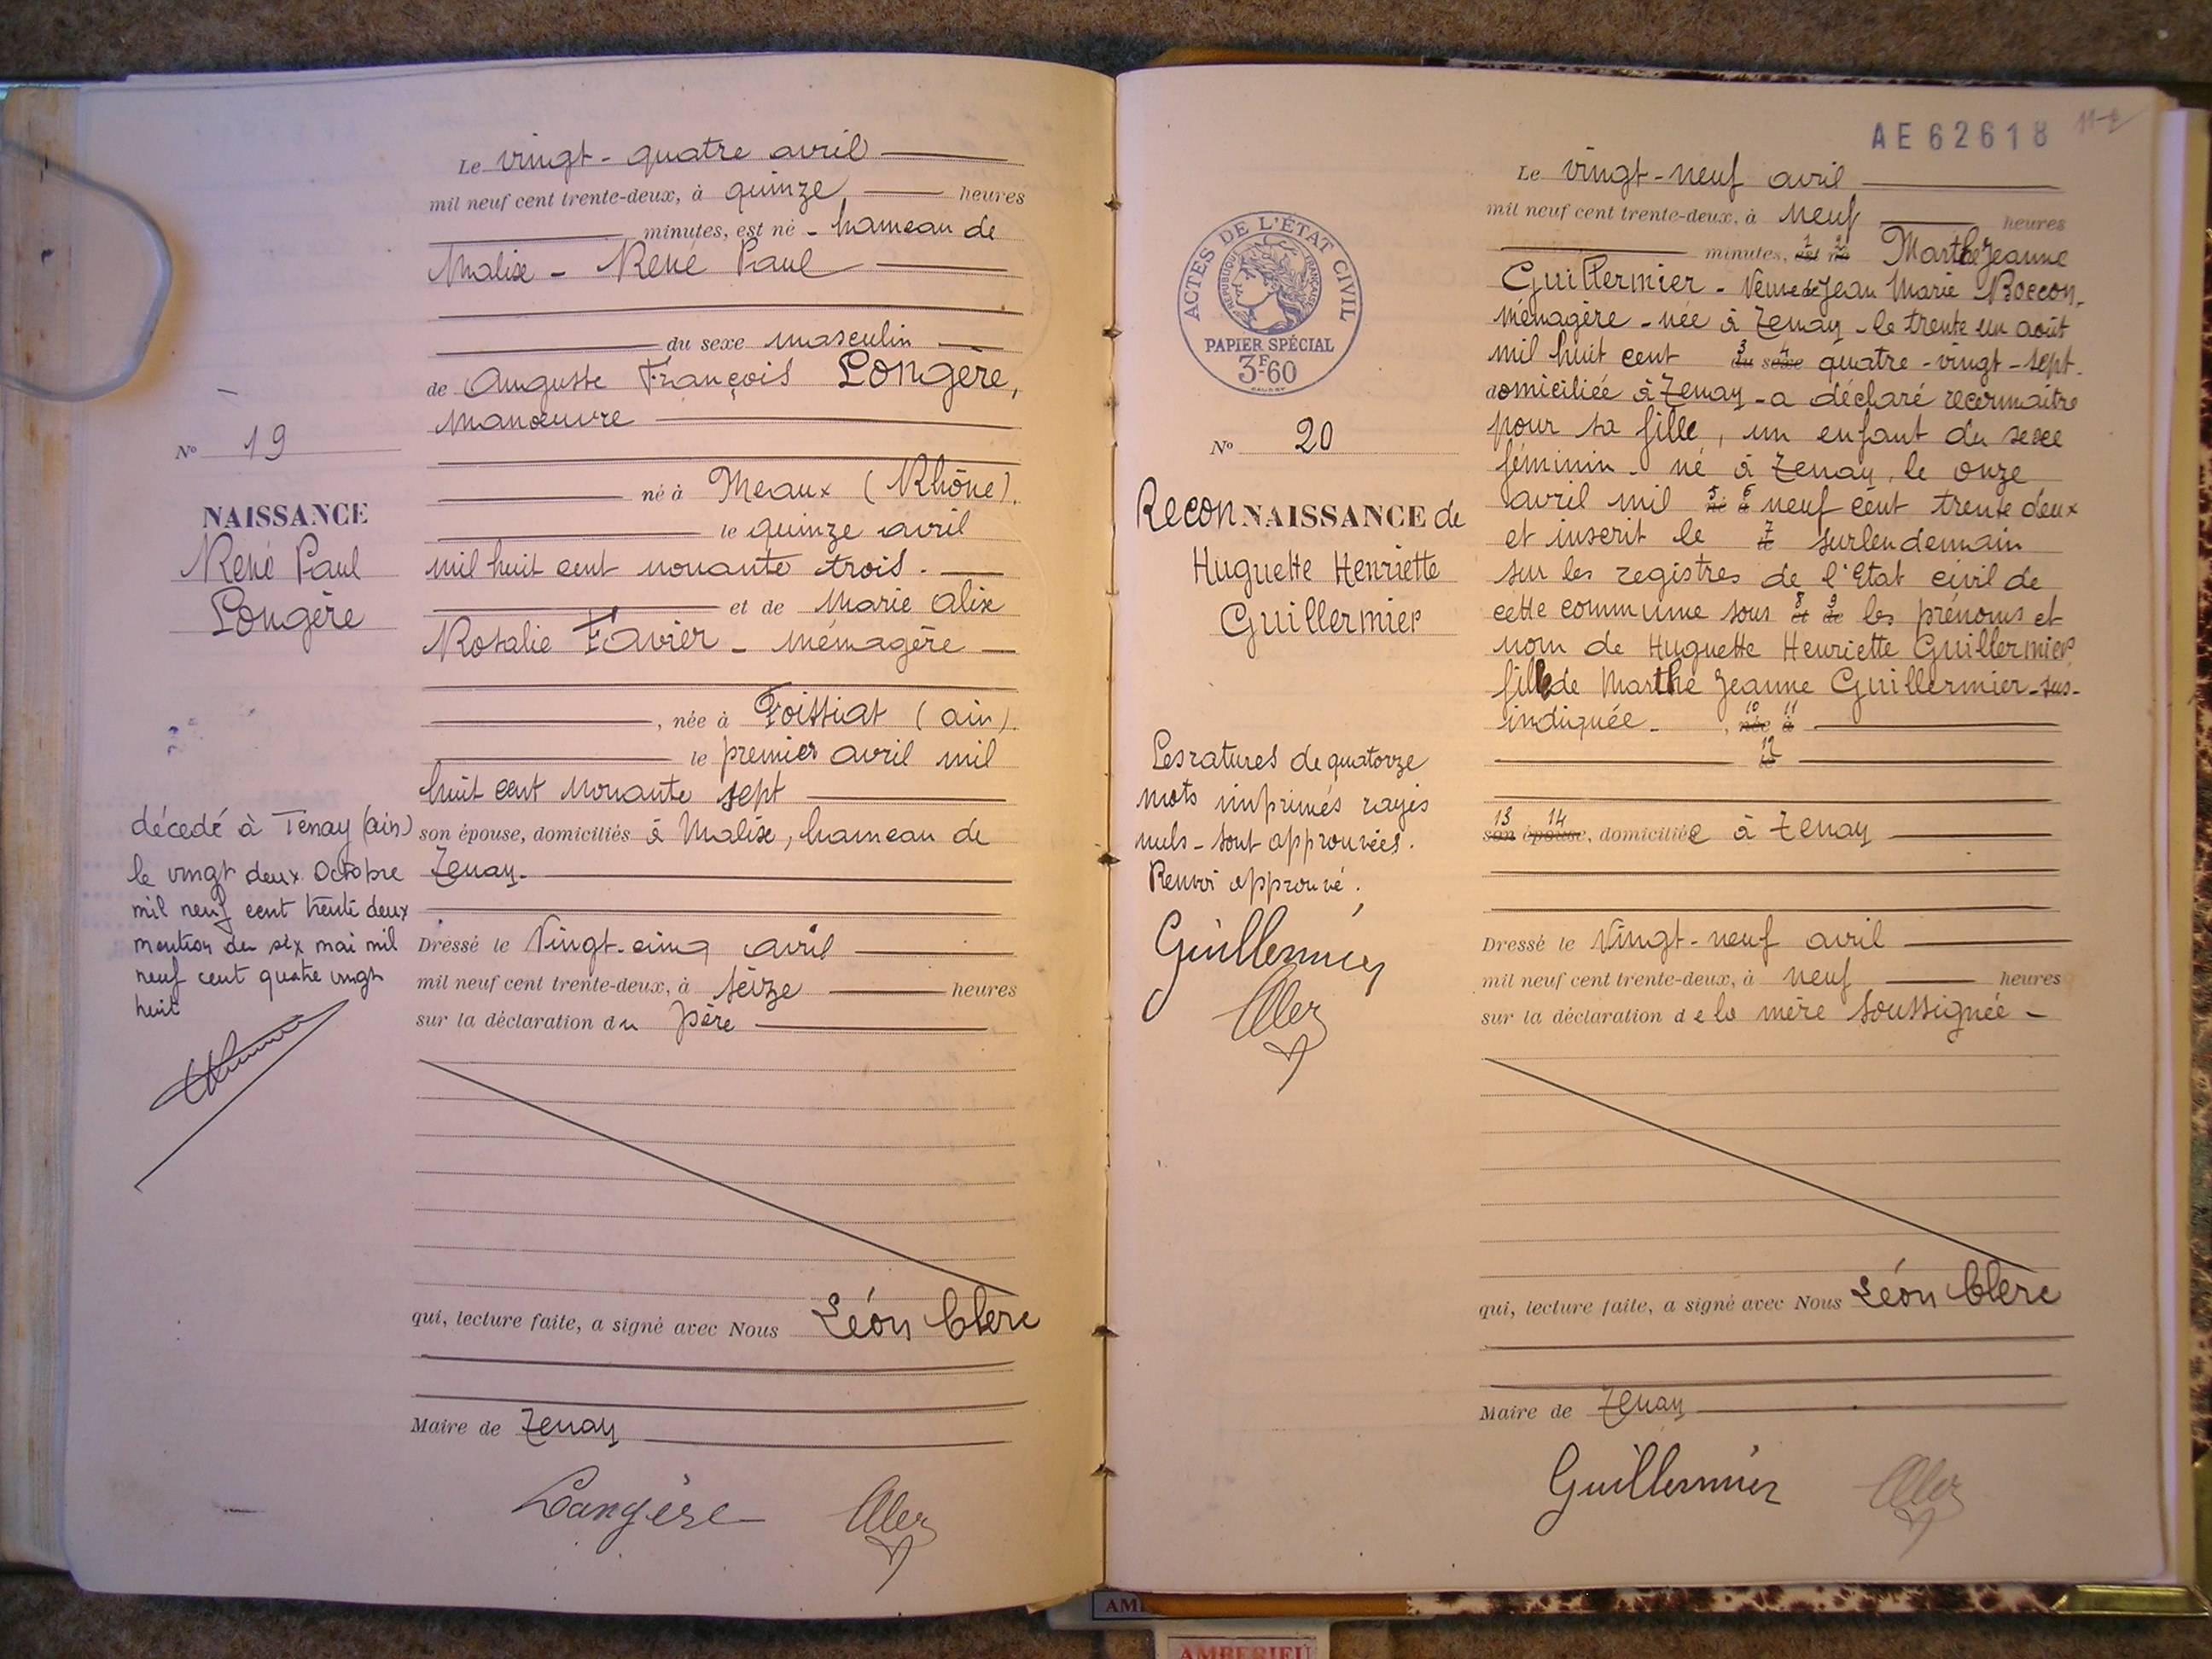 Le vingt-quatre avril
mil neuf cent trente-deux, à quinze heures
minutes, est né - hameau de
Malix - René Paul
du sexe masculin
de Auguste François Longère,
manœuvre
né à Meaux (Rhône).
le quinze avril
mil huit cent nonante trois.
et de Marie Alix
Rosalie Favier - ménagère
, née à Foissiat (ain).
le premier avril mil
huit cent nonante sept
son épouse, domiciliés à Malix, hameau de
Tenay.
Dressé le Vingt-cinq avril
mil neuf cent trente-deux, à seize heures
sur la déclaration du père
qui, lecture faite, a signé avec Nous Léon Clerc
Maire de Tenay
Longère
N° 19
NAISSANCE
René Paul
Longère
décedé à Tenay (ain)
le vingt deux Octobre
mil neuf cent trente deux
mention du six mai mil
neuf cent quatre vingt
huit
AE 62618
ACTES DE L'ÉTAT CIVIL
RÉPUBLIQUE FRANÇAISE
PAPIER SPÉCIAL
3F60
N° 20
ReconNAISSANCE de
Huguette Henriette
Guillermier
Les ratures de quatorze
mots imprimés rayés
nuls - sont approuvées.
Renvoi approuvé.
Guillermier
Le vingt-neuf avril
mil neuf cent trente-deux, à neuf heures
minutes, 1 est 2 né Marthe Jeanne
Guillermier - Veuve de Jean Marie Boccon -
ménagère - née à Tenay - le trente un août
mil huit cent 3 du 4 sexe quatre-vingt-sept.
domiciliée à Tenay - a déclaré reconnaître
pour sa fille, un enfant du sexe
féminin - né à Tenay, le onze
avril mil 5 6 neuf cent trente deux
et inscrit le 7 surlendemain
sur les registres de l'Etat civil de
cette commune sous 8 et 9 de les prénoms et
nom de Huguette Henriette Guillermier
fille de Marthe Jeanne Guillermier - sus-
indiquée. , 10 née 11 à
12 le
13 son 14 épouse, domiciliée à Tenay
Dressé le Vingt-neuf avril
mil neuf cent trente-deux, à neuf heures
sur la déclaration de la mère soussignée -
qui, lecture faite, a signé avec Nous Léon Clerc
Maire de Tenay
Guillermier
AMBERIEU